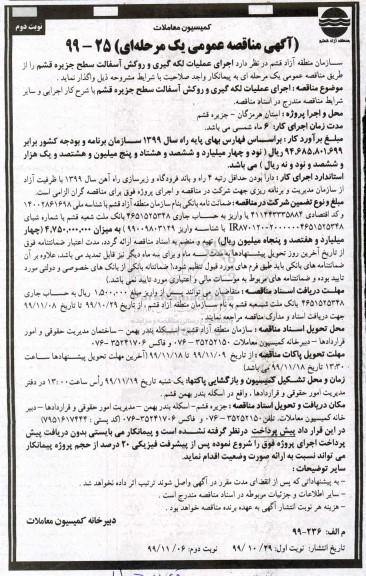 کمیسیون معاملات
نوبت دوم
(آگهی مناقصه عمومی یک مرحله‌ای) ۲۵ - ۹۹
منطقه آزاد قشم
سازمان منطقه آزاد قشم در نظر دارد اجرای عملیات لکه گیری و روکش آسفالت سطح جزیره قشم را از
طریق مناقصه عمومی یک مرحله ای به پیمانکار واجد صلاحیت با شرایط مشروحه ذیل واگذار نماید .
موضوع مناقصه : اجرای عملیات لکه گیری و روکش آسفالت سطح جزیره قشم با شرح کار اجرایی و سایر
شرایط مناقصه مندرج در اسناد مناقصه.
محل و اجرا پروژه : استان هرمزگان - جزیره قشم
مدت زمان اجرای کار: ۶ ماه شمسی می باشد.
مبلغ برآورد کار : براساس فهارس بهای پایه راه سال ۱۳۹۹ سازمان برنامه و بودجه کشور برابر
۹۴،۶۸۵،۸۰۱،۶۹۹ ریال ( نود و چهار میلیارد و ششصد و هشتاد و پنج میلیون و هشتصد و یک هزار
و ششصد و نود و نه ریال ) می باشد.
استاندارد اجرای کار : دارا بودن حداقل رتبه ۴ راه و باند فرودگاه و زیرسازی راه آهن سال ۱۳۹۹ با ظرفیت آزاد
از سازمان مدیریت و برنامه ریزی جهت شرکت در مناقصه و اجرای پروژه فوق برای مناقصه گران الزامی است.
مبلغ و نوع تضمین شرکت در مناقصه : ضمانت نامه بانکی بنام سازمان منطقه آزاد قشم با شناسه ملی ۱۴۰۰۲۸۶۱۶۹۸
و کد اقتصادی ۴۱۱۴۴۳۳۳۵۸۸۴ یا واریز به حساب جاری ۴۶۵۱۵۲۵۳۴۸ بانک ملت شعبه قشم با شماره شبای
به میزان ۴،۷۵۰،۰۰۰،۰۰۰ (چهار
میلیارد و هفتصد و پنجاه میلیون ریال) تهیه و منضم به اسناد مناقصه ارائه گردد، مدت اعتبار ضمانتنامه فوق
از تاریخ آخرین روز تحویل پیشنهادها، به مدت سه ماه و برای سه ماه دیگر نیز قابل تمدید می باشد، علاوه بر آن
ضمانتنامه های بانکی باید طبق فرم های مورد قبول تنظیم شود.( ضمانتنامه بانکی از بانک های خصوصی و دولتی مورد
تایید بوده و ضمانتنامه های مربوط به موسسات مالی و اعتباری مورد تایید نمی باشد)
مهلت دریافت اسناد مناقصه : متقاضیان می توانند پس از واریز مبلغ ۱،۵۰۰،۰۰۰ ریال به حساب جاری
۴۶۵۱۵۲۵۳۴۸ بانک ملت شعبه قشم به نام سازمان منطقه آزاد قشم ، از تاریخ ۹۹/۱۰/۲۹ تا تاریخ ۹۹/۱۱/۰۸
جهت دریافت اسناد و مدارک مناقصه مراجعه نمایند .
محل تحویل اسناد مناقصه : سازمان منطقه آزاد قشم- اسکله بندر بهمن - ساختمان مدیریت حقوقی و امور
قراردادها - دبیرخانه کمیسیون معاملات
مهلت تحویل پاکات مناقصه : از تاریخ ۹۹/۱۱/۰۹ تا ۹۹/۱۱/۱۸ (آخرین مهلت تحویل پیشنهادها ساعت
۱۳:۳۰ تاریخ ۹۹/۱۱/۱۸ می باشد)
زمان و محل تشکیل کمیسیون و بازگشایی پاکتها: یک شنبه تاریخ ۹۹/۱۱/۱۹ رأس ساعت ۱۳:۰۰ در دفتر
مدیریت امور حقوقی و قراردادها ، واقع در اسکله بندر بهمن قشم .
مکان دریافت و تحویل اسناد مناقصه : جزیره قشم- اسکله بندر بهمن - مدیریت امور حقوقی و قراردادها - دبیر
خانه کمیسیون معاملات.
در این قرار داد پیش پرداخت درنظر گرفته نشده است و پیمانکار می بایستی بدون دریافت پیش
پرداخت اجرای پروژه فوق را شروع نموده پس از پیشرفت فیزیکی ۲۰ درصد از حجم پروژه پیمانکار
می تواند نسبت به ارائه صورت وضعیت اقدام نماید.
سایر توضیحات :
- به پیشنهاداتی که پس از انقضای مدت مقرر در آگهی واصل شوند ترتیب اثر داده نخواهد شد .
- سایر اطلاعات و جزئیات مربوطه در اسناد مناقصه مندرج است .
- هزینه هر نوبت انتشار آگهی به عهده برنده مناقصه خواهد بود .
دبیرخانه کمیسیون معاملات
م الف: ۲۳۶-۹۹
تاریخ انتشار: نوبت اول: ۲۹/ ۱۰/ ۹۹ نوبت دوم: ۰۶/ ۱۱/ ۹۹